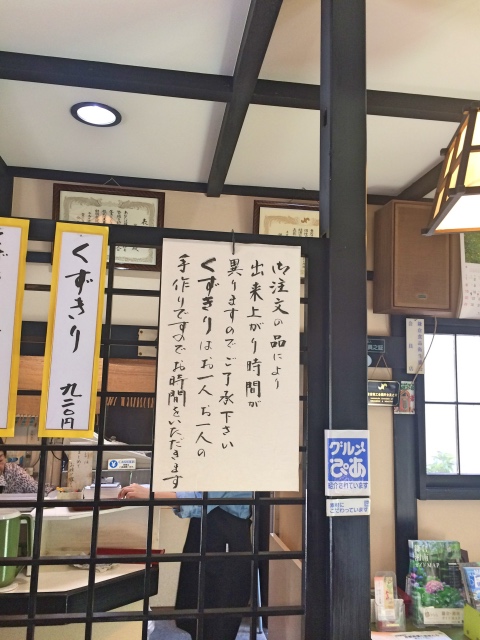 御注文の品により
出来上がり時間が
異りますのでご了承下さい
くずきりはお一人お一人の
手作りですのでお時間をいただきます
くずきり 九二〇円
グルメ
ぴあ
紹介されています
素材に
こだわっています
MAP